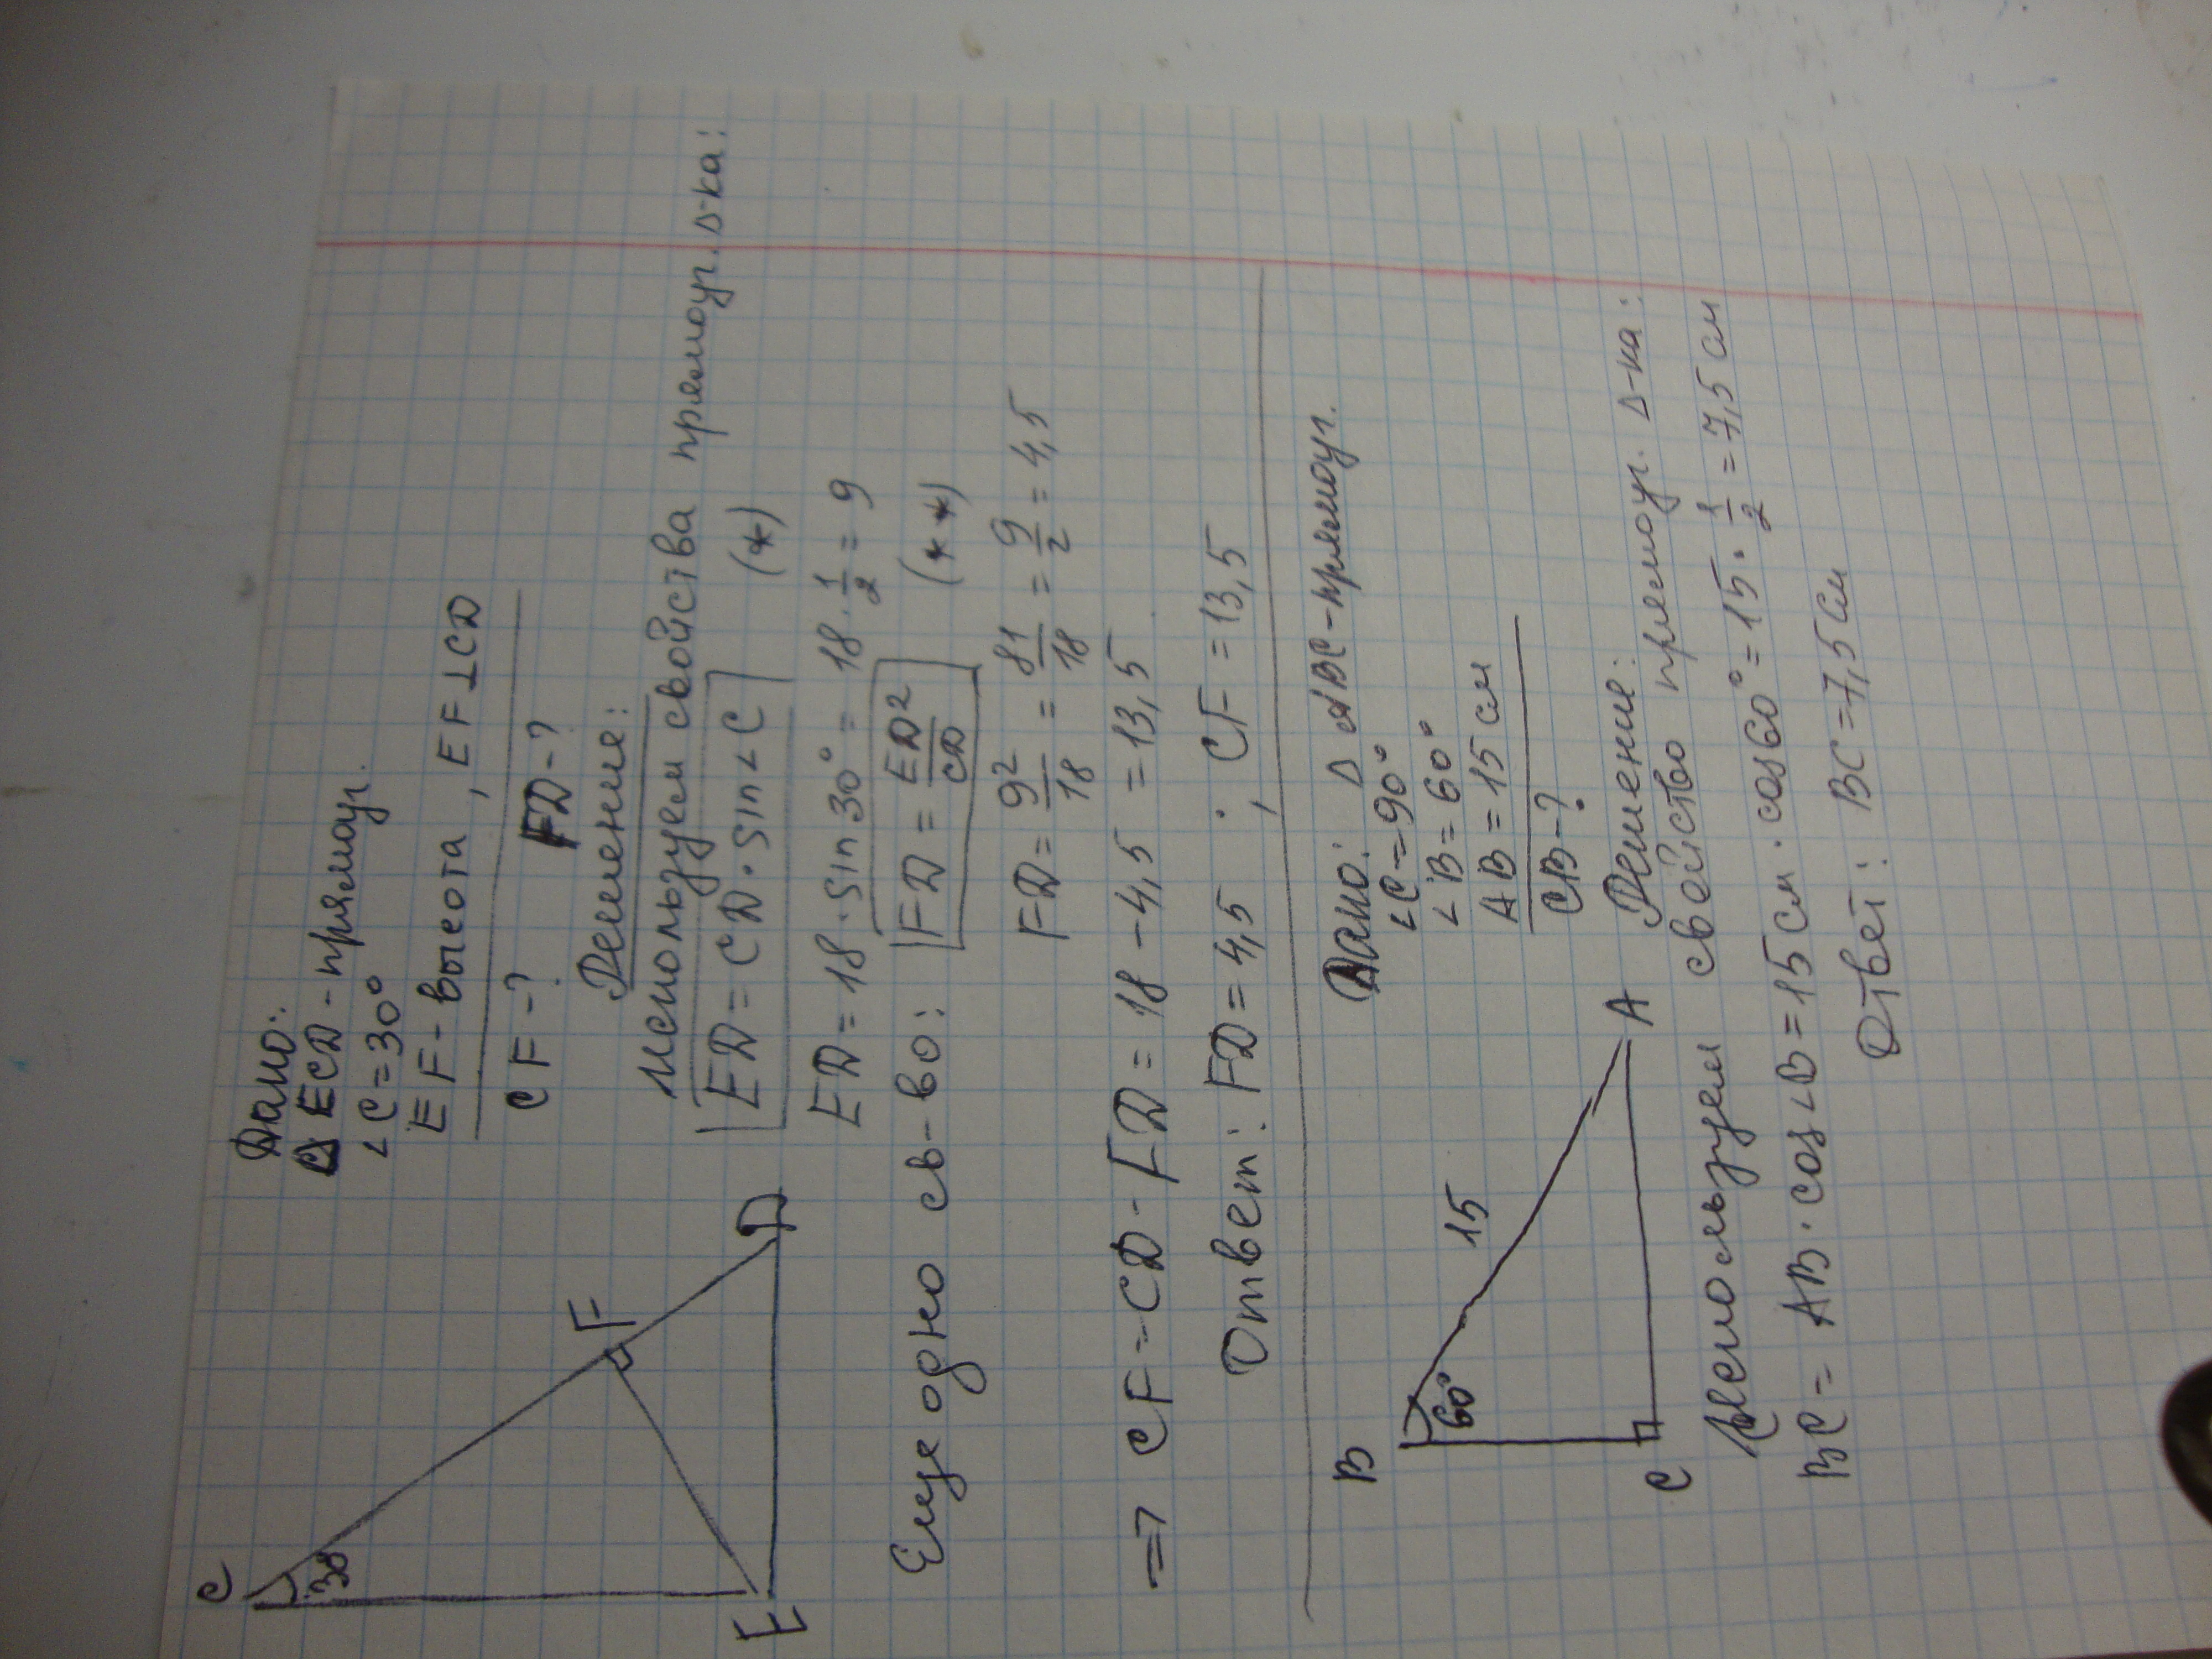 C
30°
F
E
D
Дано:
△ ECD - прямоуг.
∠C=30°
EF - высота, EF⊥CD
CF-? FD-?
Решение:
Используем свойства прямоуг. Δ-ка:
ED = CD·sin∠C (*)
ED = 18·sin30° = 18·1/2 = 9
Еще одно св-во: FD = ED²/CD (**)
FD = 9²/18 = 81/18 = 9/2 = 4,5
=> CF = CD - FD = 18 - 4,5 = 13,5
Ответ: FD = 4,5 ; CF = 13,5
B
60°
15
C
A
Дано: Δ ABC - прямоуг.
∠C=90°
∠B=60°
AB=15 см
CB-?
Решение:
Используем свойство прямоуг. Δ-ка:
BC = AB·cos∠B = 15 см·cos60° = 15·1/2 = 7,5 см
Ответ: BC=7,5 см